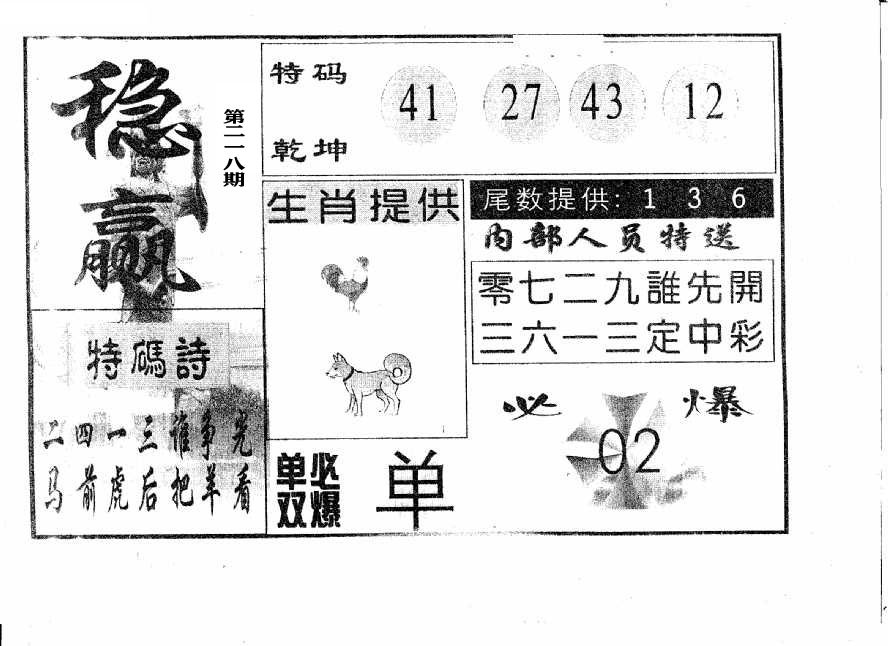 稳赢
第二一八期
特码
乾坤
41 27 43 12
生肖提供
尾数提供: 1 3 6
内部人员特送
零七二九誰先開
三六一三定中彩
特碼詩
二四一三谁争先
马前虎后把羊看
单双必爆
单
必爆
02